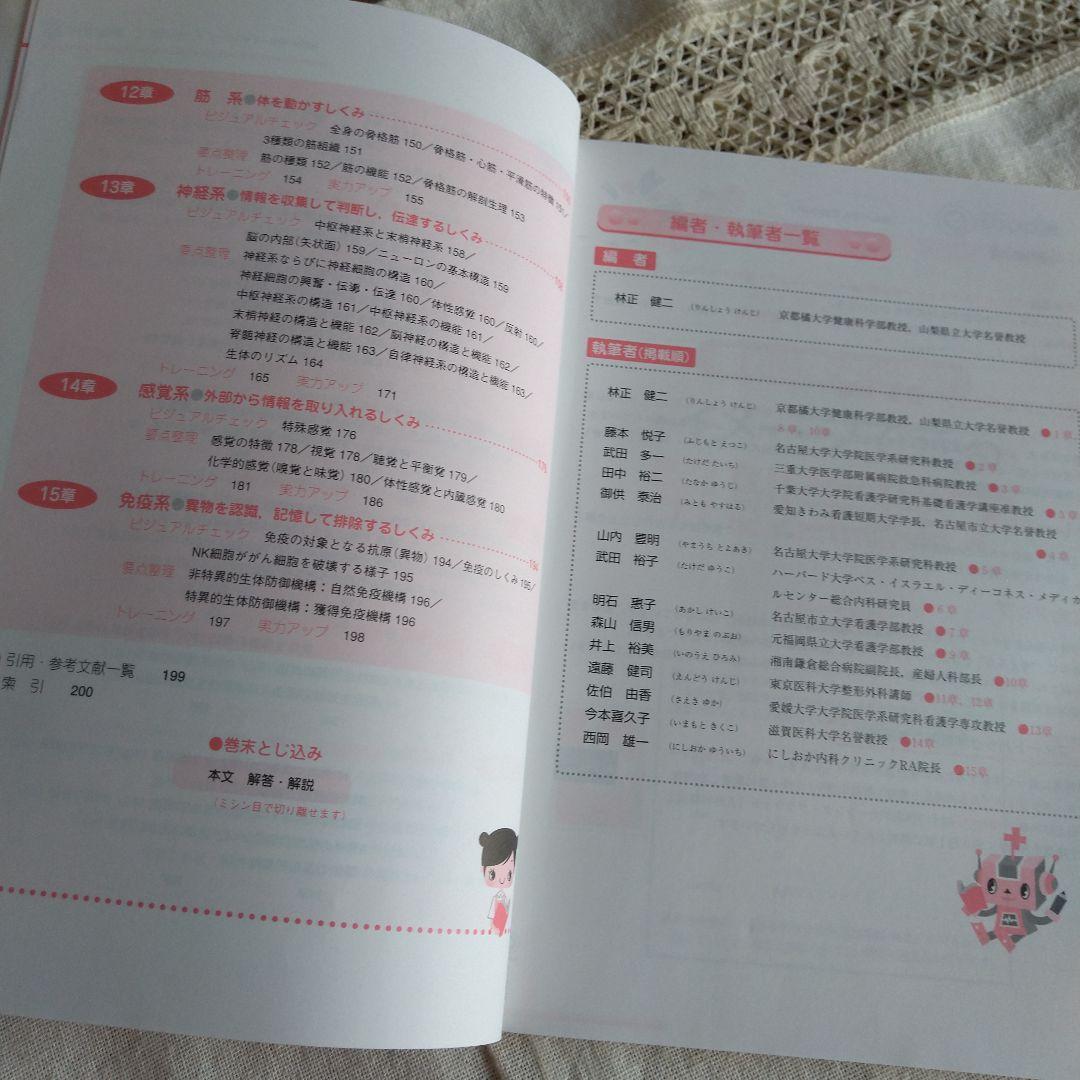 12章 筋 系●体を動かすしくみ
ビジュアルチェック 全身の骨格筋 150／骨格筋・心筋・平滑筋の特徴 151／
3種類の筋組織 151
要点整理 筋の種類 152／筋の機能 152／骨格筋の解剖生理 153
トレーニング 154 実力アップ 155
13章 神経系●情報を収集して判断し，伝達するしくみ
ビジュアルチェック 中枢神経系と末梢神経系 158／
脳の内部（矢状面）159／ニューロンの基本構造 159
要点整理 神経系ならびに神経細胞の構造 160／
神経細胞の興奮・伝導・伝達 160／体性感覚 160／反射 160／
中枢神経系の構造 161／中枢神経系の機能 161／
末梢神経の構造と機能 162／脳神経の構造と機能 162／
脊髄神経の構造と機能 163／自律神経系の構造と機能 163／
生体のリズム 164
トレーニング 165 実力アップ 171
14章 感覚系●外部から情報を取り入れるしくみ 176
ビジュアルチェック 特殊感覚 176
要点整理 感覚の特徴 178／視覚 178／聴覚と平衡覚 179／
化学的感覚（嗅覚と味覚）180／体性感覚と内臓感覚 180
トレーニング 181 実力アップ 186
15章 免疫系●異物を認識，記憶して排除するしくみ 194
ビジュアルチェック 免疫の対象となる抗原（異物）194／免疫のしくみ 195／
NK細胞ががん細胞を破壊する様子 195
要点整理 非特異的生体防御機構：自然免疫機構 196／
特異的生体防御機構：獲得免疫機構 196
トレーニング 197 実力アップ 198
引用・参考文献一覧 199
索 引 200
●巻末とじ込み
本文 解答・解説
（ミシン目で切り離せます）
編者・執筆者一覧
編 者
林正 健二 （りんしょう けんじ） 京都橘大学健康科学部教授，山梨県立大学名誉教授
執筆者（掲載順）
林正 健二 （りんしょう けんじ） 京都橘大学健康科学部教授，山梨県立大学名誉教授 ●1章，
8章，10章
藤本 悦子 （ふじもと えつこ） 名古屋大学大学院医学系研究科教授 ●2章
武田 多一 （たけだ たいち） 三重大学医学部附属病院救急科病院教授 ●3章
田中 裕二 （たなか ゆうじ） 千葉大学大学院看護学研究科基礎看護学講座准教授 ●3章
御供 泰治 （みとも やすはる） 愛知きわみ看護短期大学学長，名古屋市立大学名誉教授
●4章
山内 豊明 （やまうち とよあき） 名古屋大学大学院医学系研究科教授 ●5章
武田 裕子 （たけだ ゆうこ） ハーバード大学ベス・イスラエル・ディーコネス・メディカ
ルセンター総合内科研究員 ●6章
明石 惠子 （あかし けいこ） 名古屋市立大学看護学部教授 ●7章
森山 信男 （もりやま のぶお） 元福岡県立大学看護学部教授 ●9章
井上 裕美 （いのうえ ひろみ） 湘南鎌倉総合病院副院長，産婦人科部長 ●10章
遠藤 健司 （えんどう けんじ） 東京医科大学整形外科講師 ●11章，12章
佐伯 由香 （さえき ゆか） 愛媛大学大学院医学系研究科看護学専攻教授 ●13章
今本喜久子 （いまもと きくこ） 滋賀医科大学名誉教授 ●14章
西岡 雄一 （にしおか ゆういち） にしおか内科クリニックRA院長 ●15章